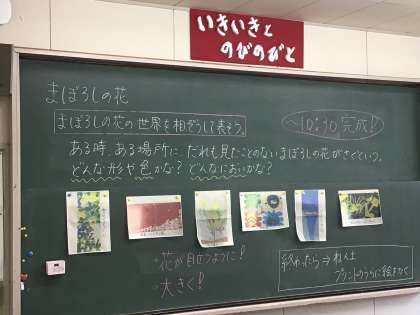 いきいきと
のびのびと
まぼろしの花
まぼろしの花の世界を想ぞうして表そう。
～10:30 完成！
ある時、ある場所に、だれも見たことのないまぼろしの花がさくという。
どんな形や色かな？どんなにおいかな？
・花が目立つように！
・大きく！
終わったら⇒ねん土
プリントのうらに絵をかく